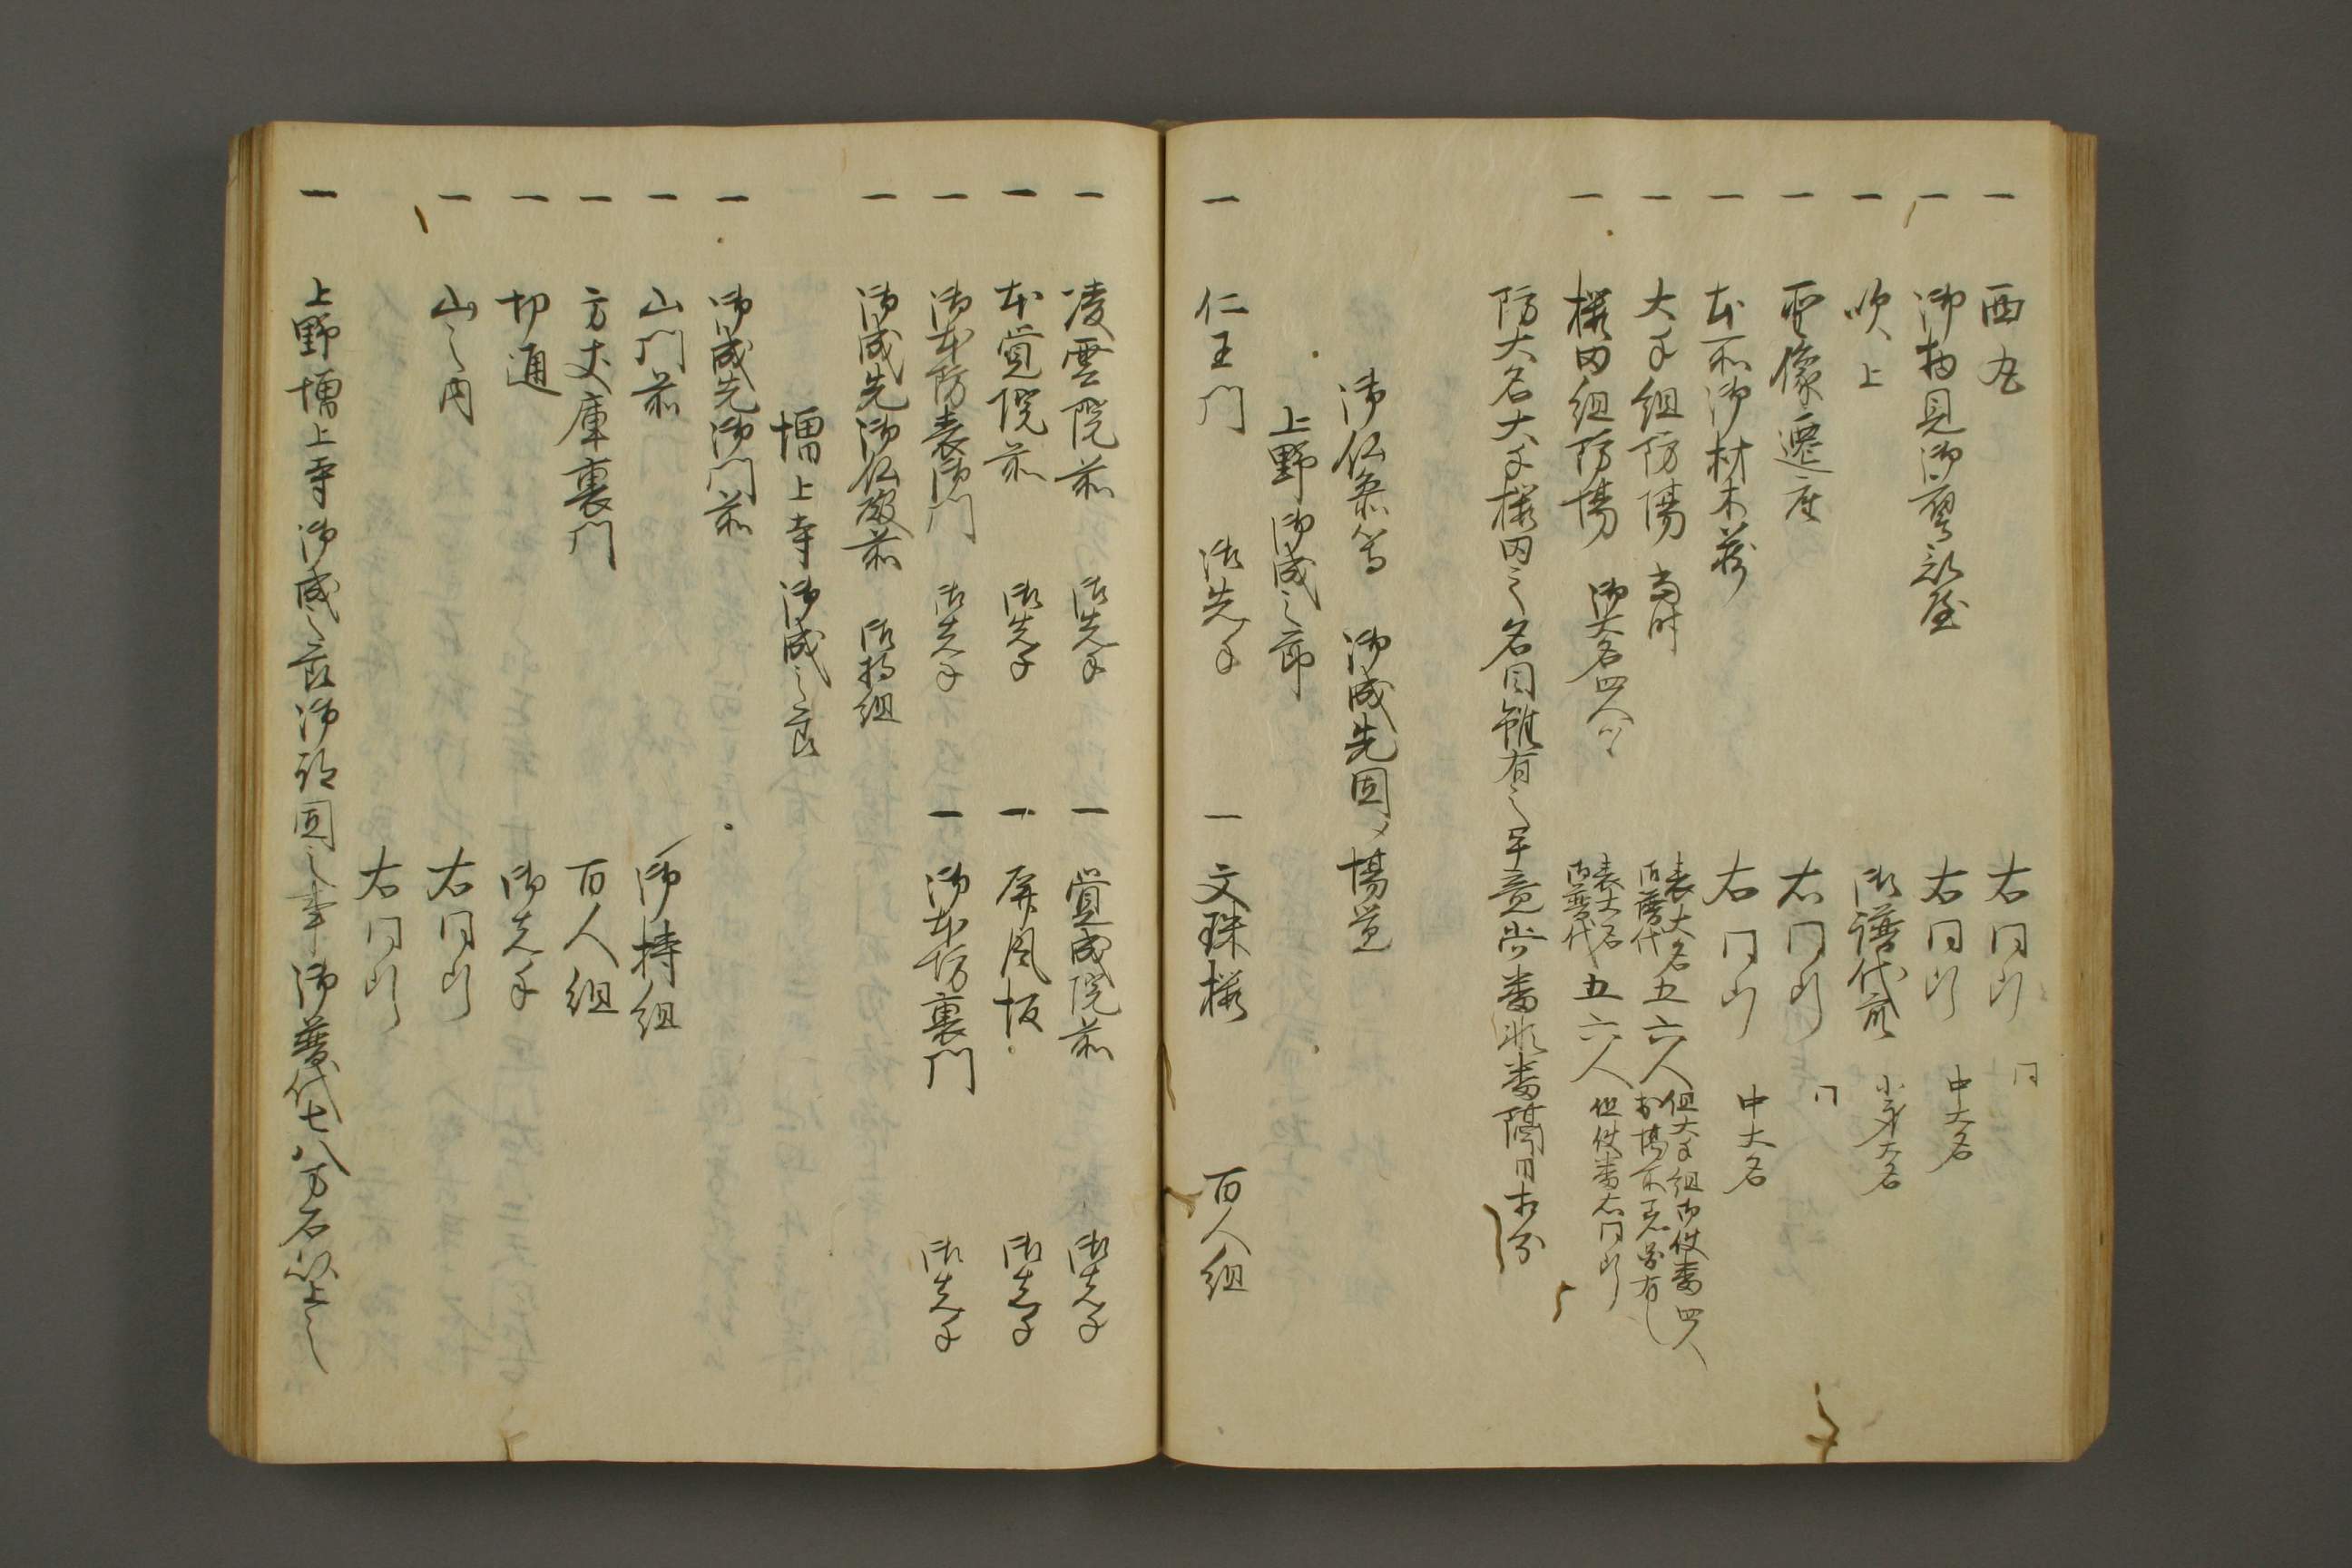 一 西丸 右同断 同
一 御物見御署部屋 右同断 中大名
一 吹上 御譜代衆 小身大名
一 聖像遷座 右同断 同
一 本所御材木蔵 右同断 中大名
一 大手組防場 当時 表大名御譜代五六人 但大手組御伎番四人
一 桜田組防場 御大名四人ツヽ 表大名御譜代五六人 但伎番右同断
防大名大手桜田之名目雖有之平意当番非番隔日相勤
御仏参等 御成先固メ場覚
上野御成之節
一 仁王門 御先手 一 文珠楼 百人組
一 凌雲院前 御先手 一 覚成院前 御先手
一 本覚院前 御先手 一 屏風坂 御先手
一 御本防表御門 御先手 一 御本坊裏門 御先手
一 御成先御仏殿前 御持組
増上寺御成之節
一 御成先御門前
一 山門前 御持組
一 方丈庫裏門 百人組
一 切通 御先手
一 山之内 右同断
右同断
一 上野増上寺御成之節御固之事御譜代七八万石以上之